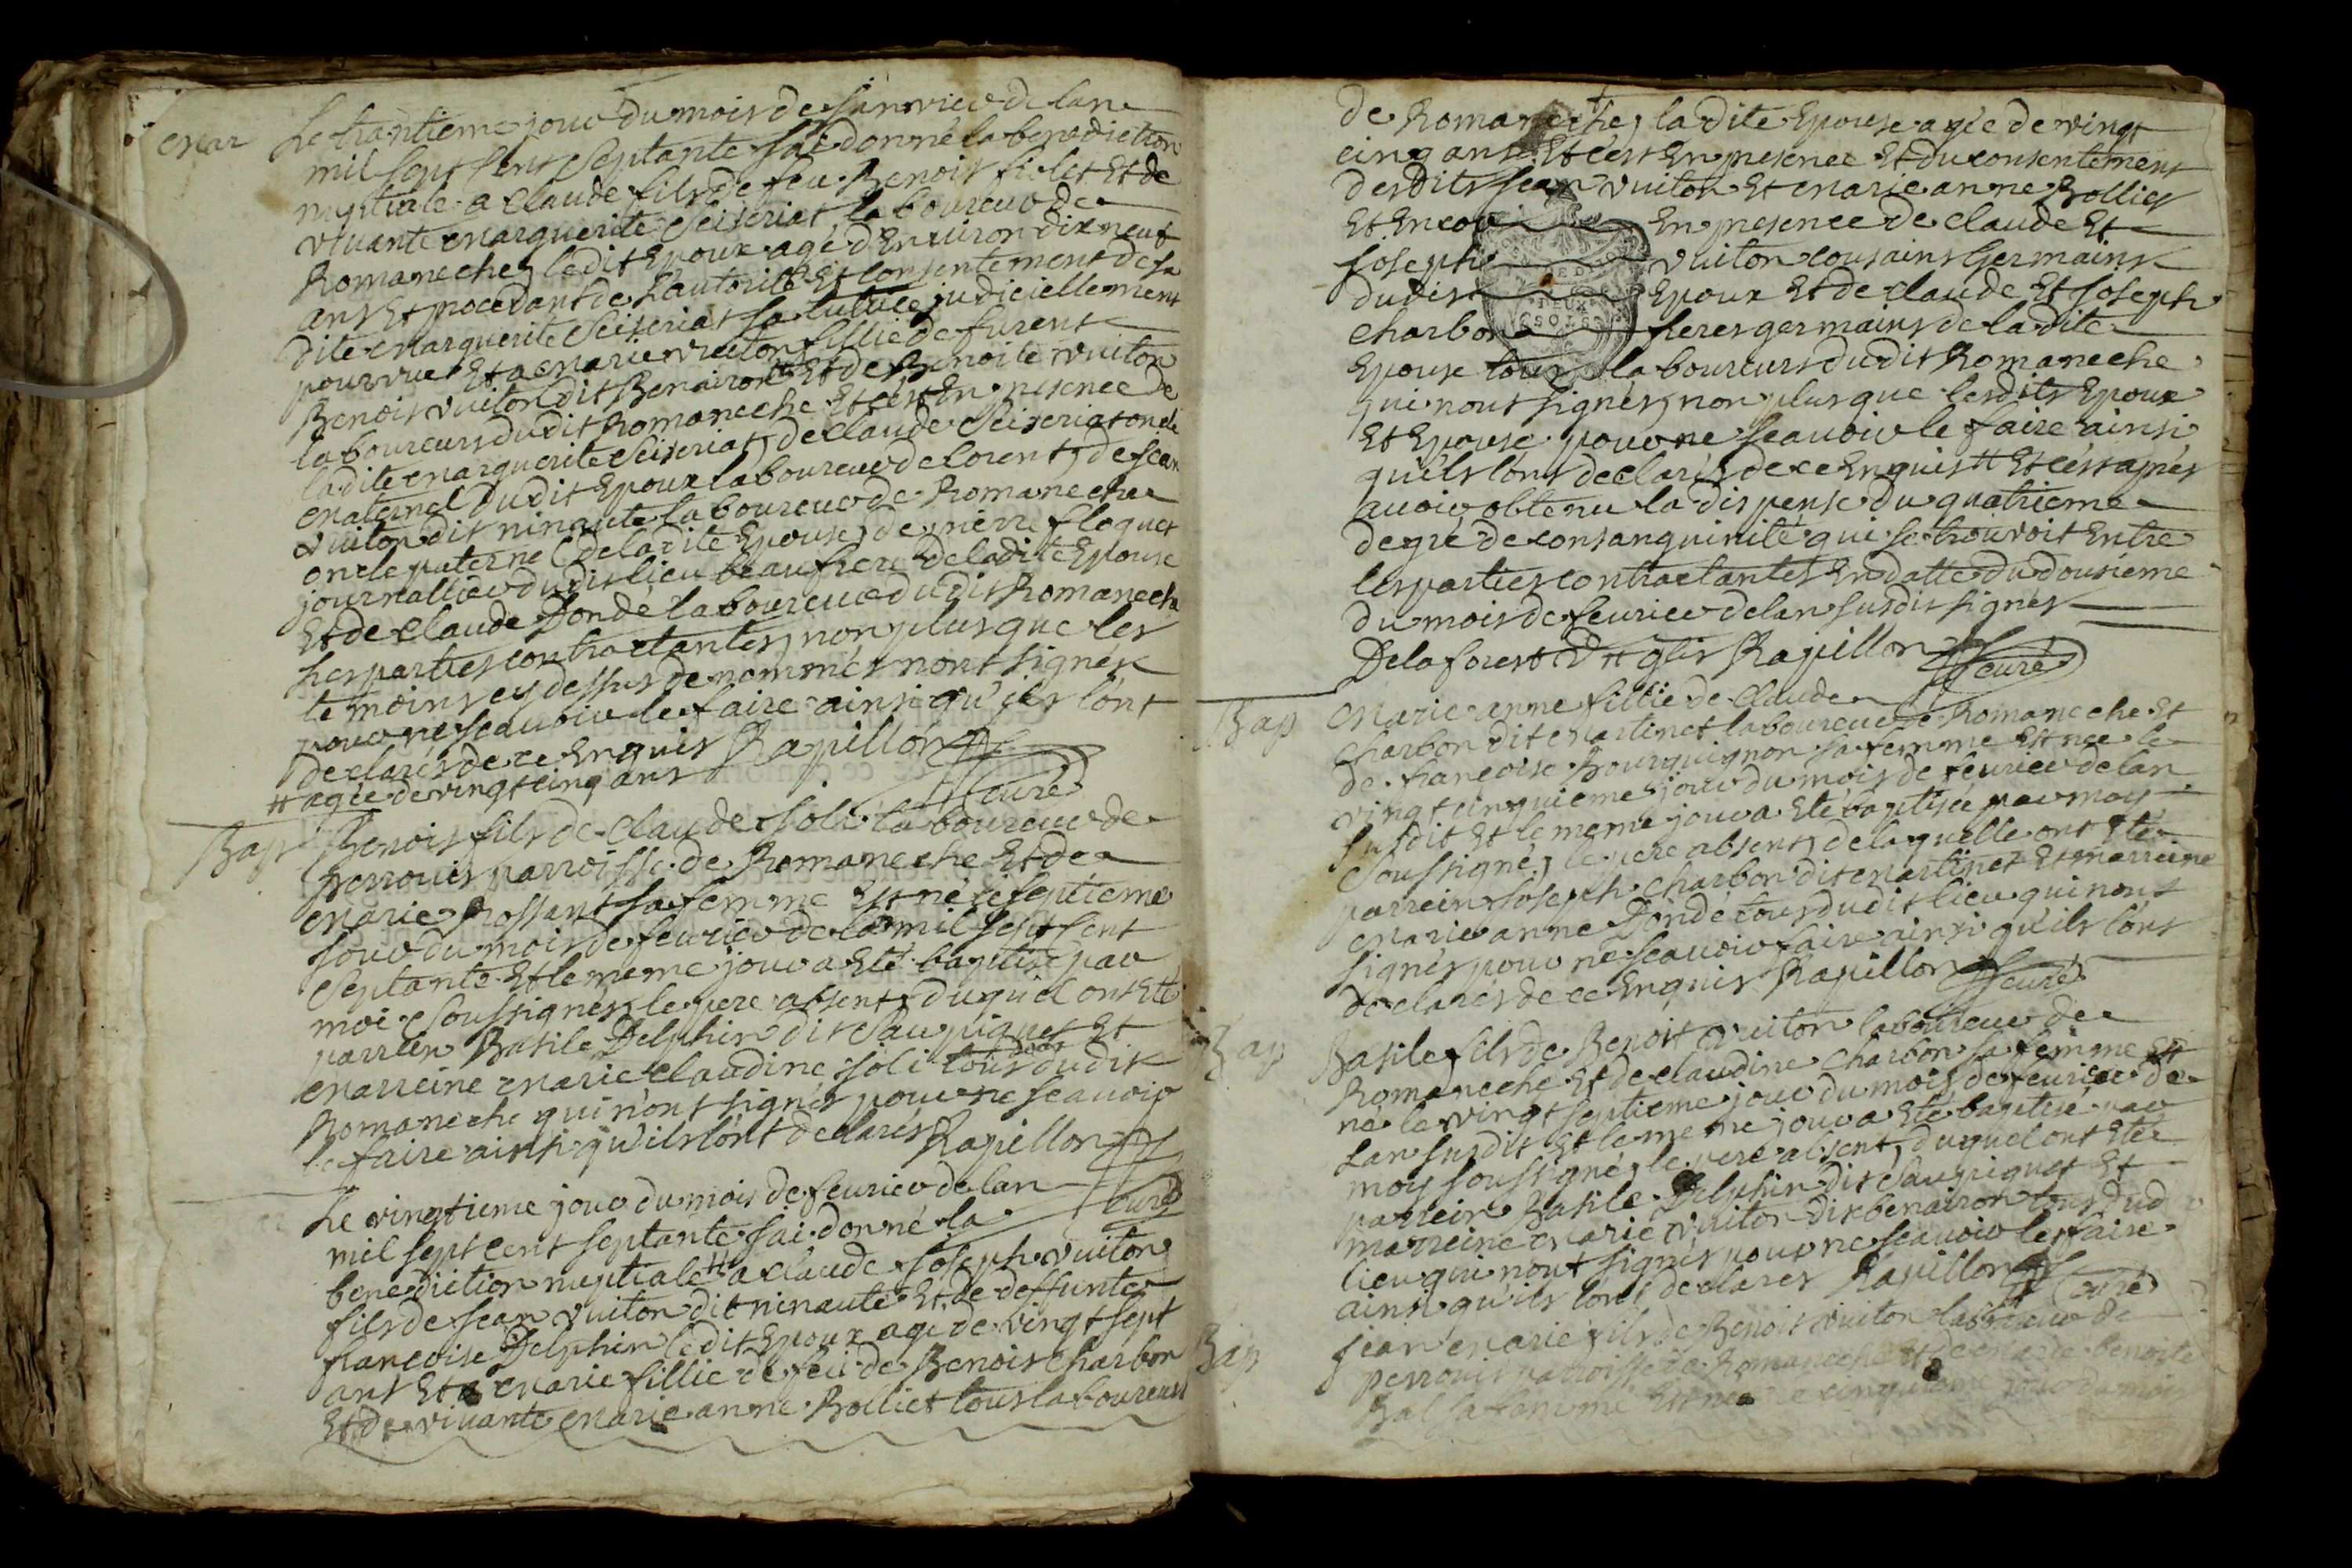 Mar Le trantieme jour du mois de Janvier de lan
mil sept Cent Septante Jai donné la benediction
nuptiale a Claude fils de feu Benoit fiolet Et de
vivante Marguerite Seiseriat laboureur de
Romaneche, ledit Epoux agé d'Environ dix neuf
ans Et procedant de L'autorité Et Consentement de sa
dite Marguerite Seiseriat sa tutrice judiciellement
pourvue Et a Marie Vuiton fillie de furent
Benoit vuiton dit Benairon Et de Benoite Vuiton
laboureurs dudit Romaneche Et cest En presence de
ladite Marguerite Seiseriat, de Claude Seiseriat oncle
maternel dudit Epoux laboureur de Lorent, de Jean
Vuiton dit ninaute laboureur de Romaneche
oncle paternel de ladite Epouse, de pierre floquet
journallier dudit lieu beaufrere de ladite Epouse
Et de Claude Dondé laboureur dudit Romaneche
Les parties contractantes, non plus que les
temoins cy dessus denommés nont signés
pour ne scavoir le faire ainsi qu'ils lont
declarés de ce Enquis Rapillon
# agée de vingt cinq ans curé
Bap Benoit fils de Claude Joli laboureur de
perrouis parroisse de Romaneche Et de
Marie Rossant sa femme Est né le septieme
Jour du mois de fevrier de l'an mil sept Cent
Septante Et le meme jour a Eté baptisé par
moi Soussigné le pere absent, duquel ont Eté
parrein Basile Delphin dit Saupiquet Et
Marreine Marie Claudine joli tous deux dudit
Romaneche qui n'ont signés pour ne scavoir
le faire ainsi qu'ils lont declarés Rapillon
curé
Le vingtieme jour du mois de fevrier de lan
mil sept cent septante Jai donné la
benediction nuptiale # a claude Joseph Vuiton
fils de Jean Vuiton dit ninaute Et de deffunte
francoise Delphin ledit Epoux agé de vingt sept
ans Et a Marie fillie de feu de Benoit Charbon
Et de vivante Marie anne Rolliet tous laboureurs
de Romaneche, la dite Epouse agée de vingt
cinq ans. Et cest En presence Et du consentement
desdits Jean Vuiton Et Marie anne Rolliet
Et Encor En presence de claude Et
Joseph Vuiton cousains Germains
dudit Epoux Et de claude Et Joseph
Charbon freres germains de la dite
DEUX SOLS
Epouse tous laboureurs dudit Romaneche
qui nont signés, non plus que lesdits Epoux
Et Epouse pour ne scavoir le faire ainsi
qu'ils lont declarés de ce Enquis # Et cest apres
avoir obtenu la dispense du quatrieme
degré de consanguinité qui se trouvoit Entre
les parties contractantes En datte du dousieme
du mois de fevrier de lan susdit signés
Delaforest Rapillon curé
Bap Marie anne fillie de Claude
Charbon dit Martinet laboureur de Romaneche Et
de francoise Bourguignon sa femme Est née le
vingt cinquieme jour du mois de fevrier de lan
susdit Et le meme jour a Eté baptisée par moy
Soussigné, le pere absent, de laquelle ont Eté
parrein Joseph Charbon dit Martinet Et marreine
Marie anne Dondé tous dudit lieu qui nont
signés pour ne scavoir faire ainsi qu'ils lont
declarés de ce Enquis Rapillon curé
Bap Basile fils de Benoit Vuiton laboureur de
Romaneche Et de claudine Charbon sa femme Est
né le vingt septieme jour du mois de fevrier de
Lan susdit Et le meme jour a Eté baptisé par
moy soussigné, le pere absent, duquel ont Eté
parrein Basile Delphin dit Saupiquet Et
marreine Marie Vuiton dit benairon tous dud
lieu qui nont signés pour ne scavoir le faire
ainsi qu'ils lont declarés Rapillon curé
Bap Jean Marie fils de Benoit Vuiton laboureur de
perrouis parroisse de Romaneche Et de benoite
Bal sa femme Est né le cinquieme jour du mois